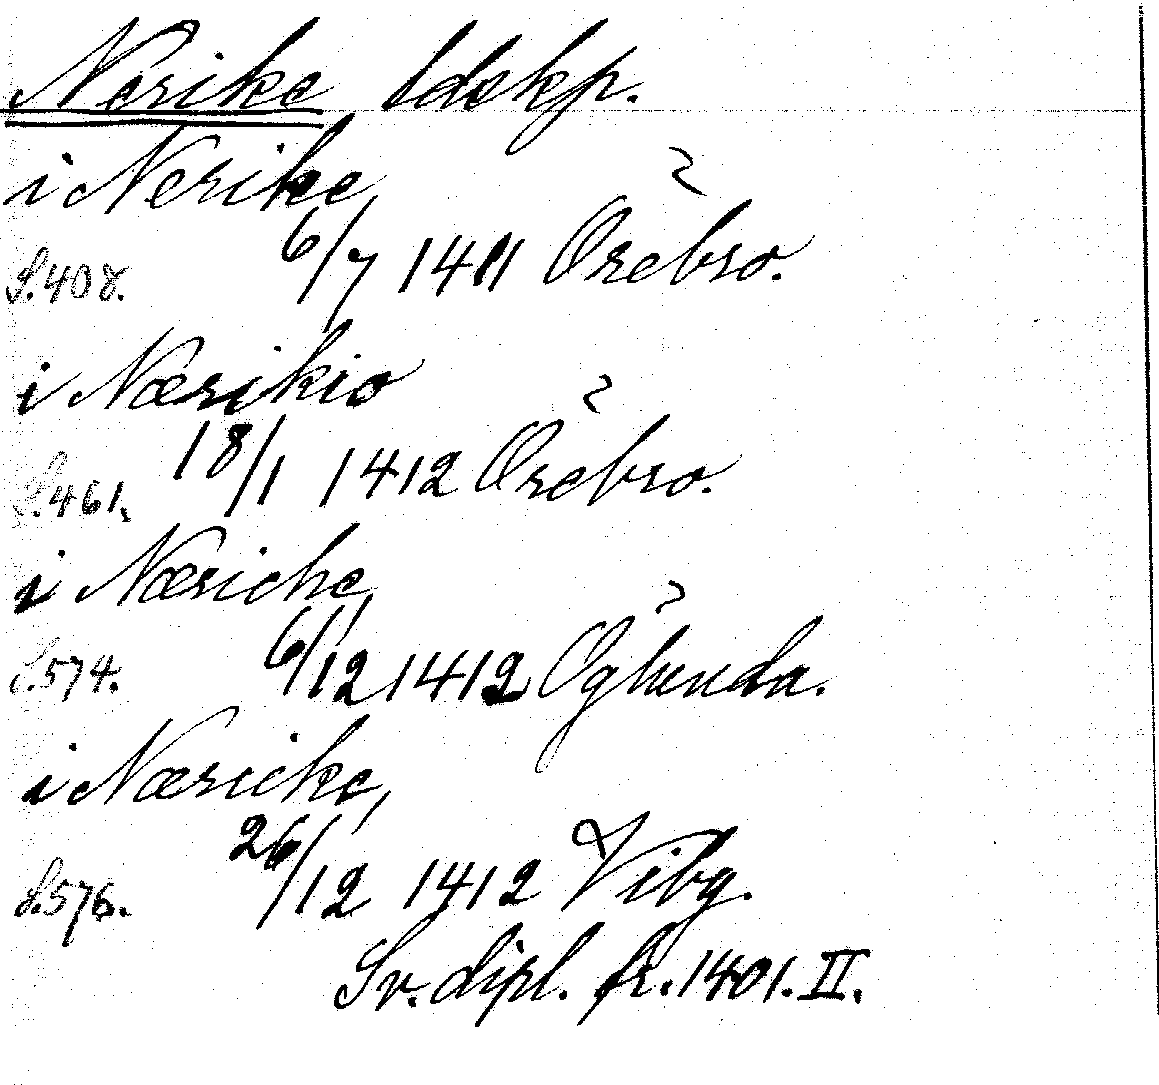 Nerike ldskp.
i Nerike,
S. 408. 6/7 1411 Örebro.
i Nærikio
S. 461. 18/1 1412 Örebro.
i Næriche,
S. 574. 6/12 1412 Öglunda.
i Næricke,
S. 576. 26/12 1412 Vibg.
Sv. dipl. fr. 1401. II.